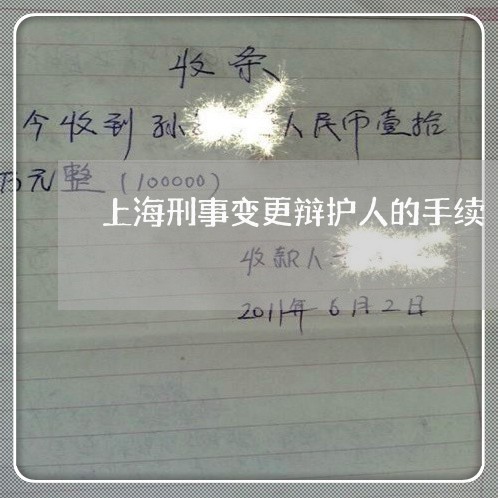 收条
今收到孙 人民币壹拾
万元整(100000)
上海刑事变更辩护人的手续
收款人
2011年6月2日